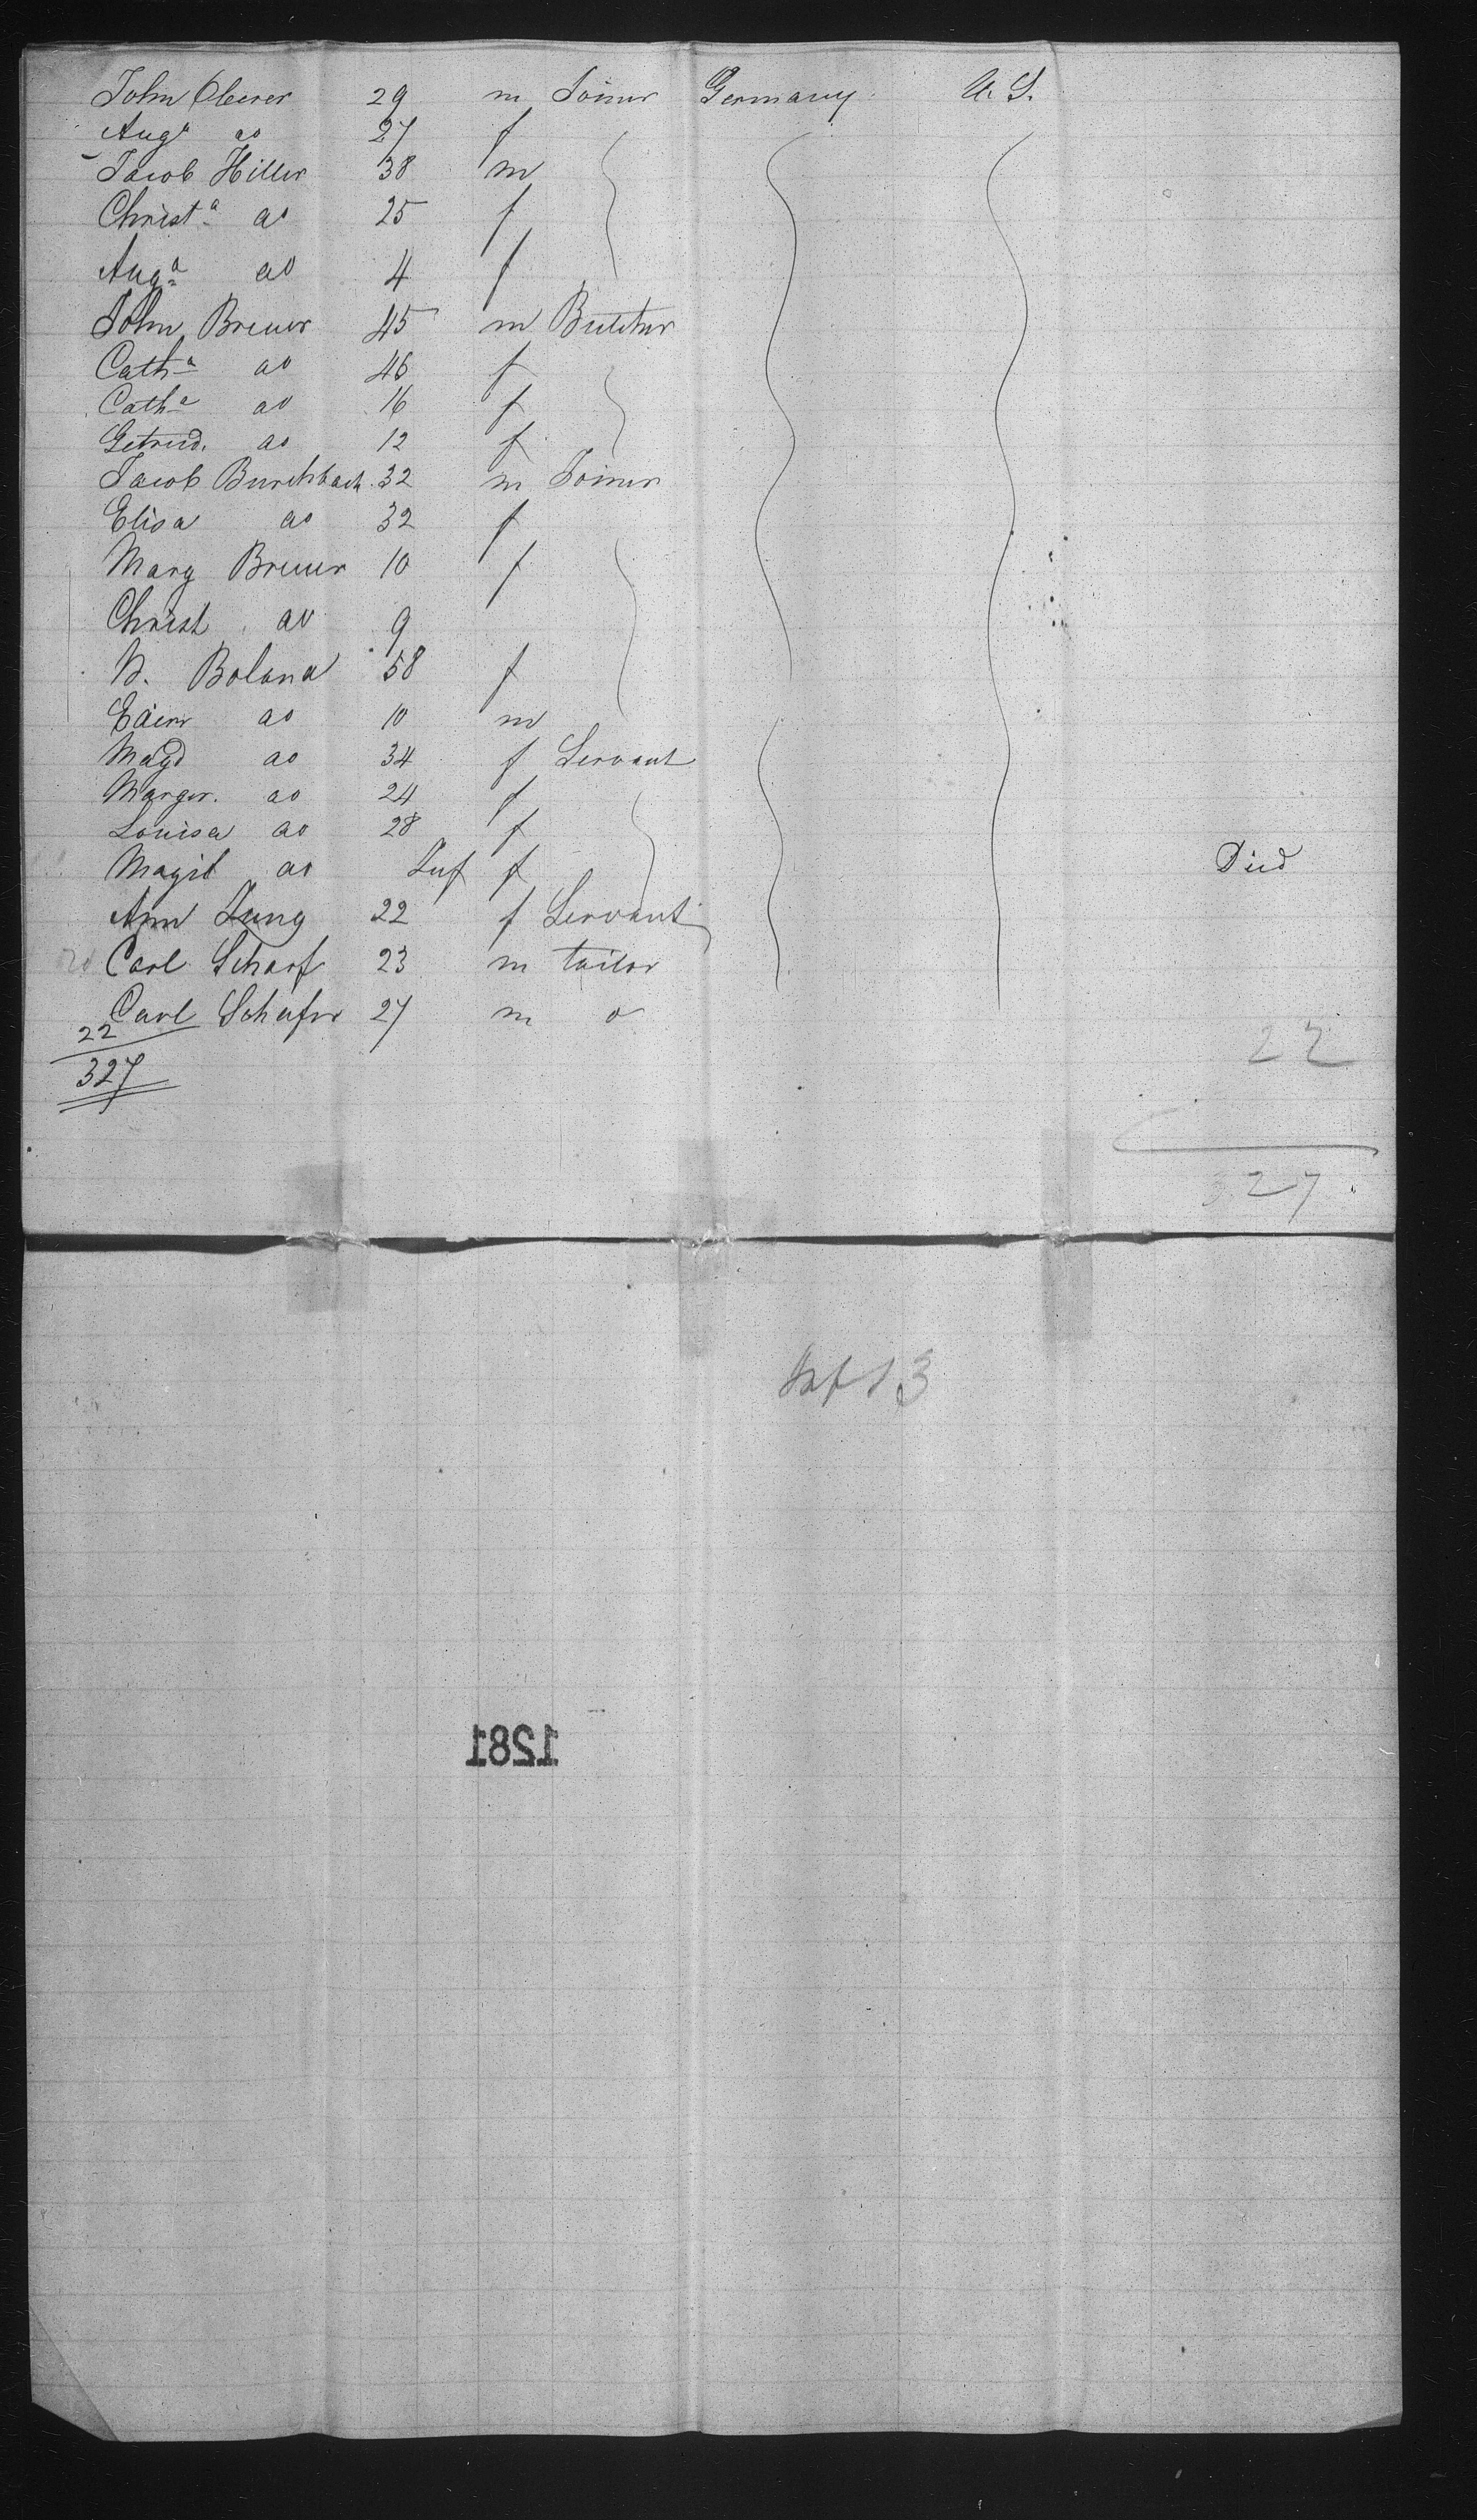 John Oberer 29 m Joiner Germany U. S.
Auga do 27 f
Jacob Hiller 38 m
Christa do 25 f
Auga do 4 f
John Breuer 45 m Butcher
Catha do 46 f
Catha do 16 f
Getrud. do 12 f
Jacob Burchbach 32 m Joiner
Elisa do 32 f
Marg Breuer 10 f
Christ do 9
Boland 58 f
do 10 m
Magd do 34 f Servant
Margr. do 24 f
Louisa do 28 f
Magil do Inf f Died
Ann Jung 22 f Servant
20 Carl Scharf 23 m tailor
Carl Schafer 27 m o
22 22
327 327
Inf 13
1281